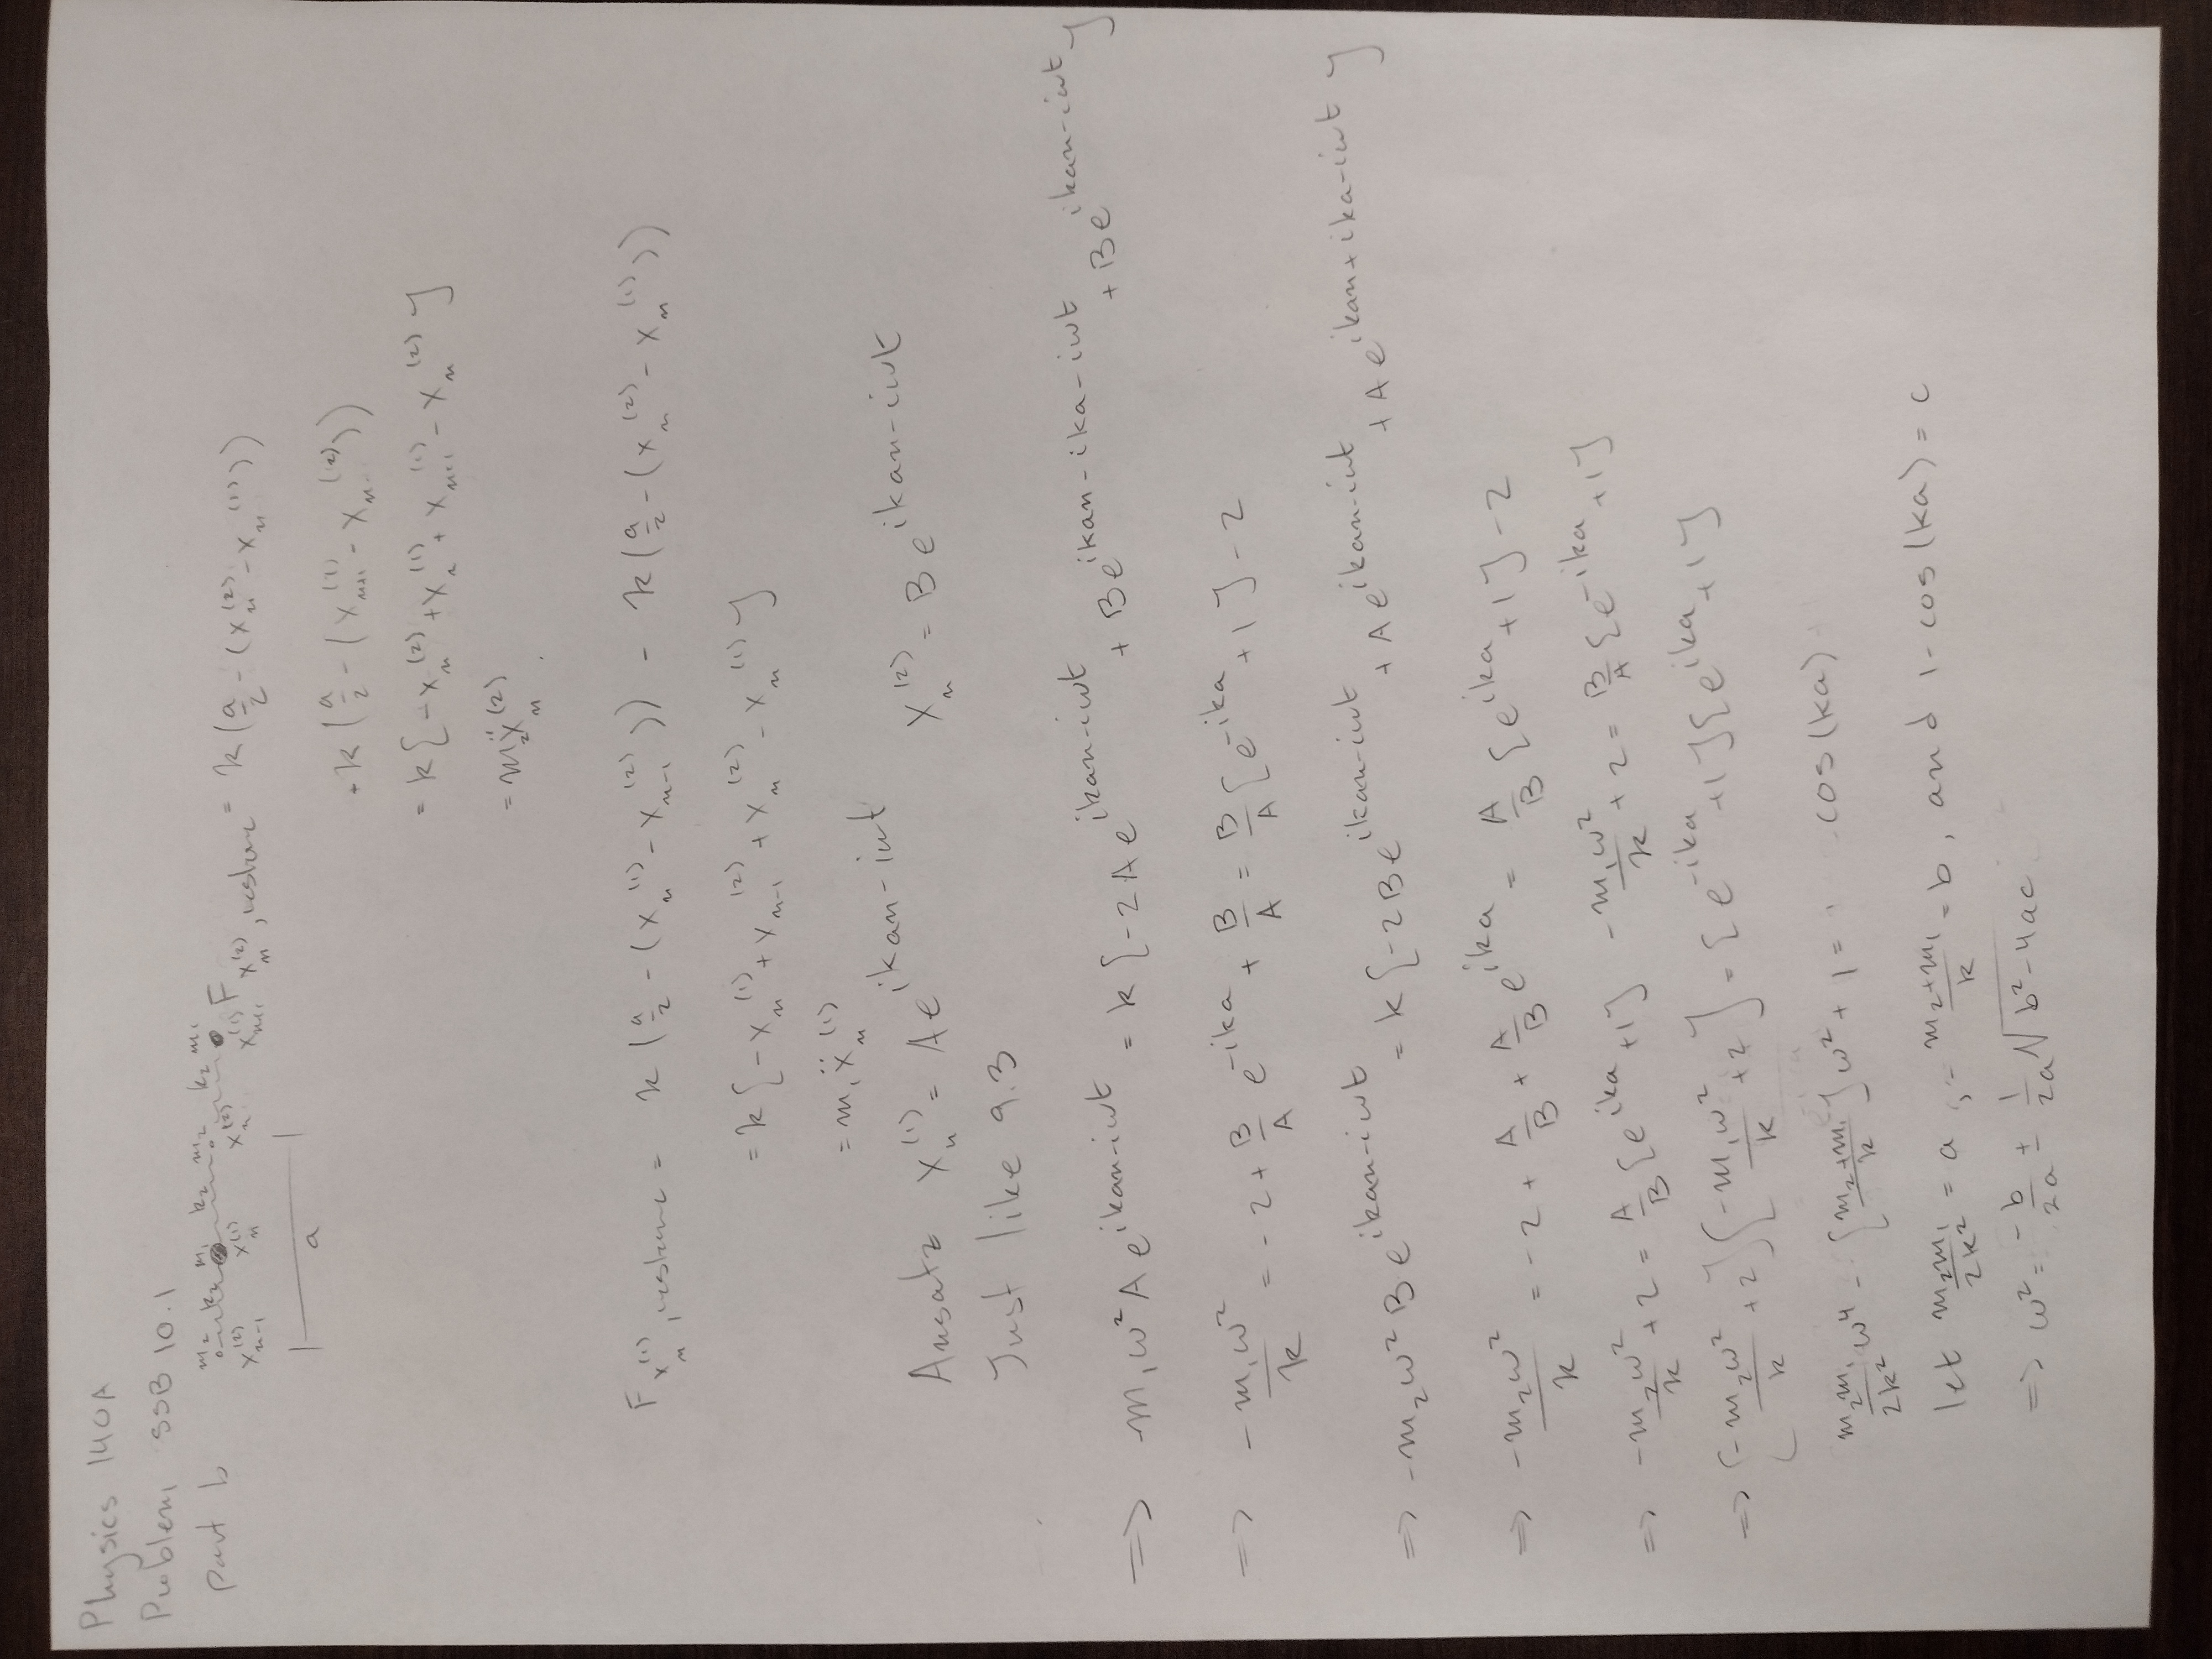 Physics 140A
Problem SSB 10.1
part b
m₂ k₂ m₁ k₂ m₂ k₂ m₁
x_{n-1}^{(2)} x_n^{(1)} x_n^{(2)} x_{n+1}^{(1)}
a
F_{x_n^{(2)}, restore} = k(a/2 - (x_n^{(2)} - x_n^{(1)}))
-k(a/2 - (x_{n+1}^{(1)} - x_n^{(2)}))
= k{-x_n^{(2)} + x_n^{(1)} + x_{n+1}^{(1)} - x_n^{(2)}}
= m₂ẍ_n^{(2)}
F_{x_n^{(1)}, restore} = k(a/2 - (x_n^{(1)} - x_{n-1}^{(2)})) - k(a/2 - (x_n^{(2)} - x_n^{(1)}))
= k{-x_n^{(1)} + x_{n-1}^{(2)} + x_n^{(2)} - x_n^{(1)}}
= m₁ẍ_n^{(1)}
Ansatz x_n^{(1)} = Ae^{ikan-iωt} x_n^{(2)} = Be^{ikan-iωt}
Just like 9.3
=> -m₁ω²Ae^{ikan-iωt} = k{-2Ae^{ikan-iωt} + Be^{ikan-ika-iωt} + Be^{ikan-iωt}}
=> -m₁ω²/k = -2 + B/A e^{-ika} + B/A = B/A{e^{-ika} + 1} - 2
=> -m₂ω²Be^{ikan-iωt} = k{-2Be^{ikan-iωt} + Ae^{ikan-iωt} + Ae^{ikan+ika-iωt}}
=> -m₂ω²/k = -2 + A/B + A/B e^{ika} = A/B{e^{ika} + 1} - 2
=> -m₂ω²/k + 2 = A/B{e^{ika} + 1} -m₁ω²/k + 2 = B/A{e^{-ika} + 1}
=> {-m₂ω²/k + 2}{-m₁ω²/k + 2} = {e^{-ika} + 1}{e^{ika} + 1}
m₂m₁/2k² ω⁴ - {m₂+m₁/k}ω² + 1 = cos(ka)
let m₂m₁/2k² = a, -m₂+m₁/k = b, and 1-cos(ka) = c
=> ω² = -b/2a ± 1/2a √(b²-4ac)